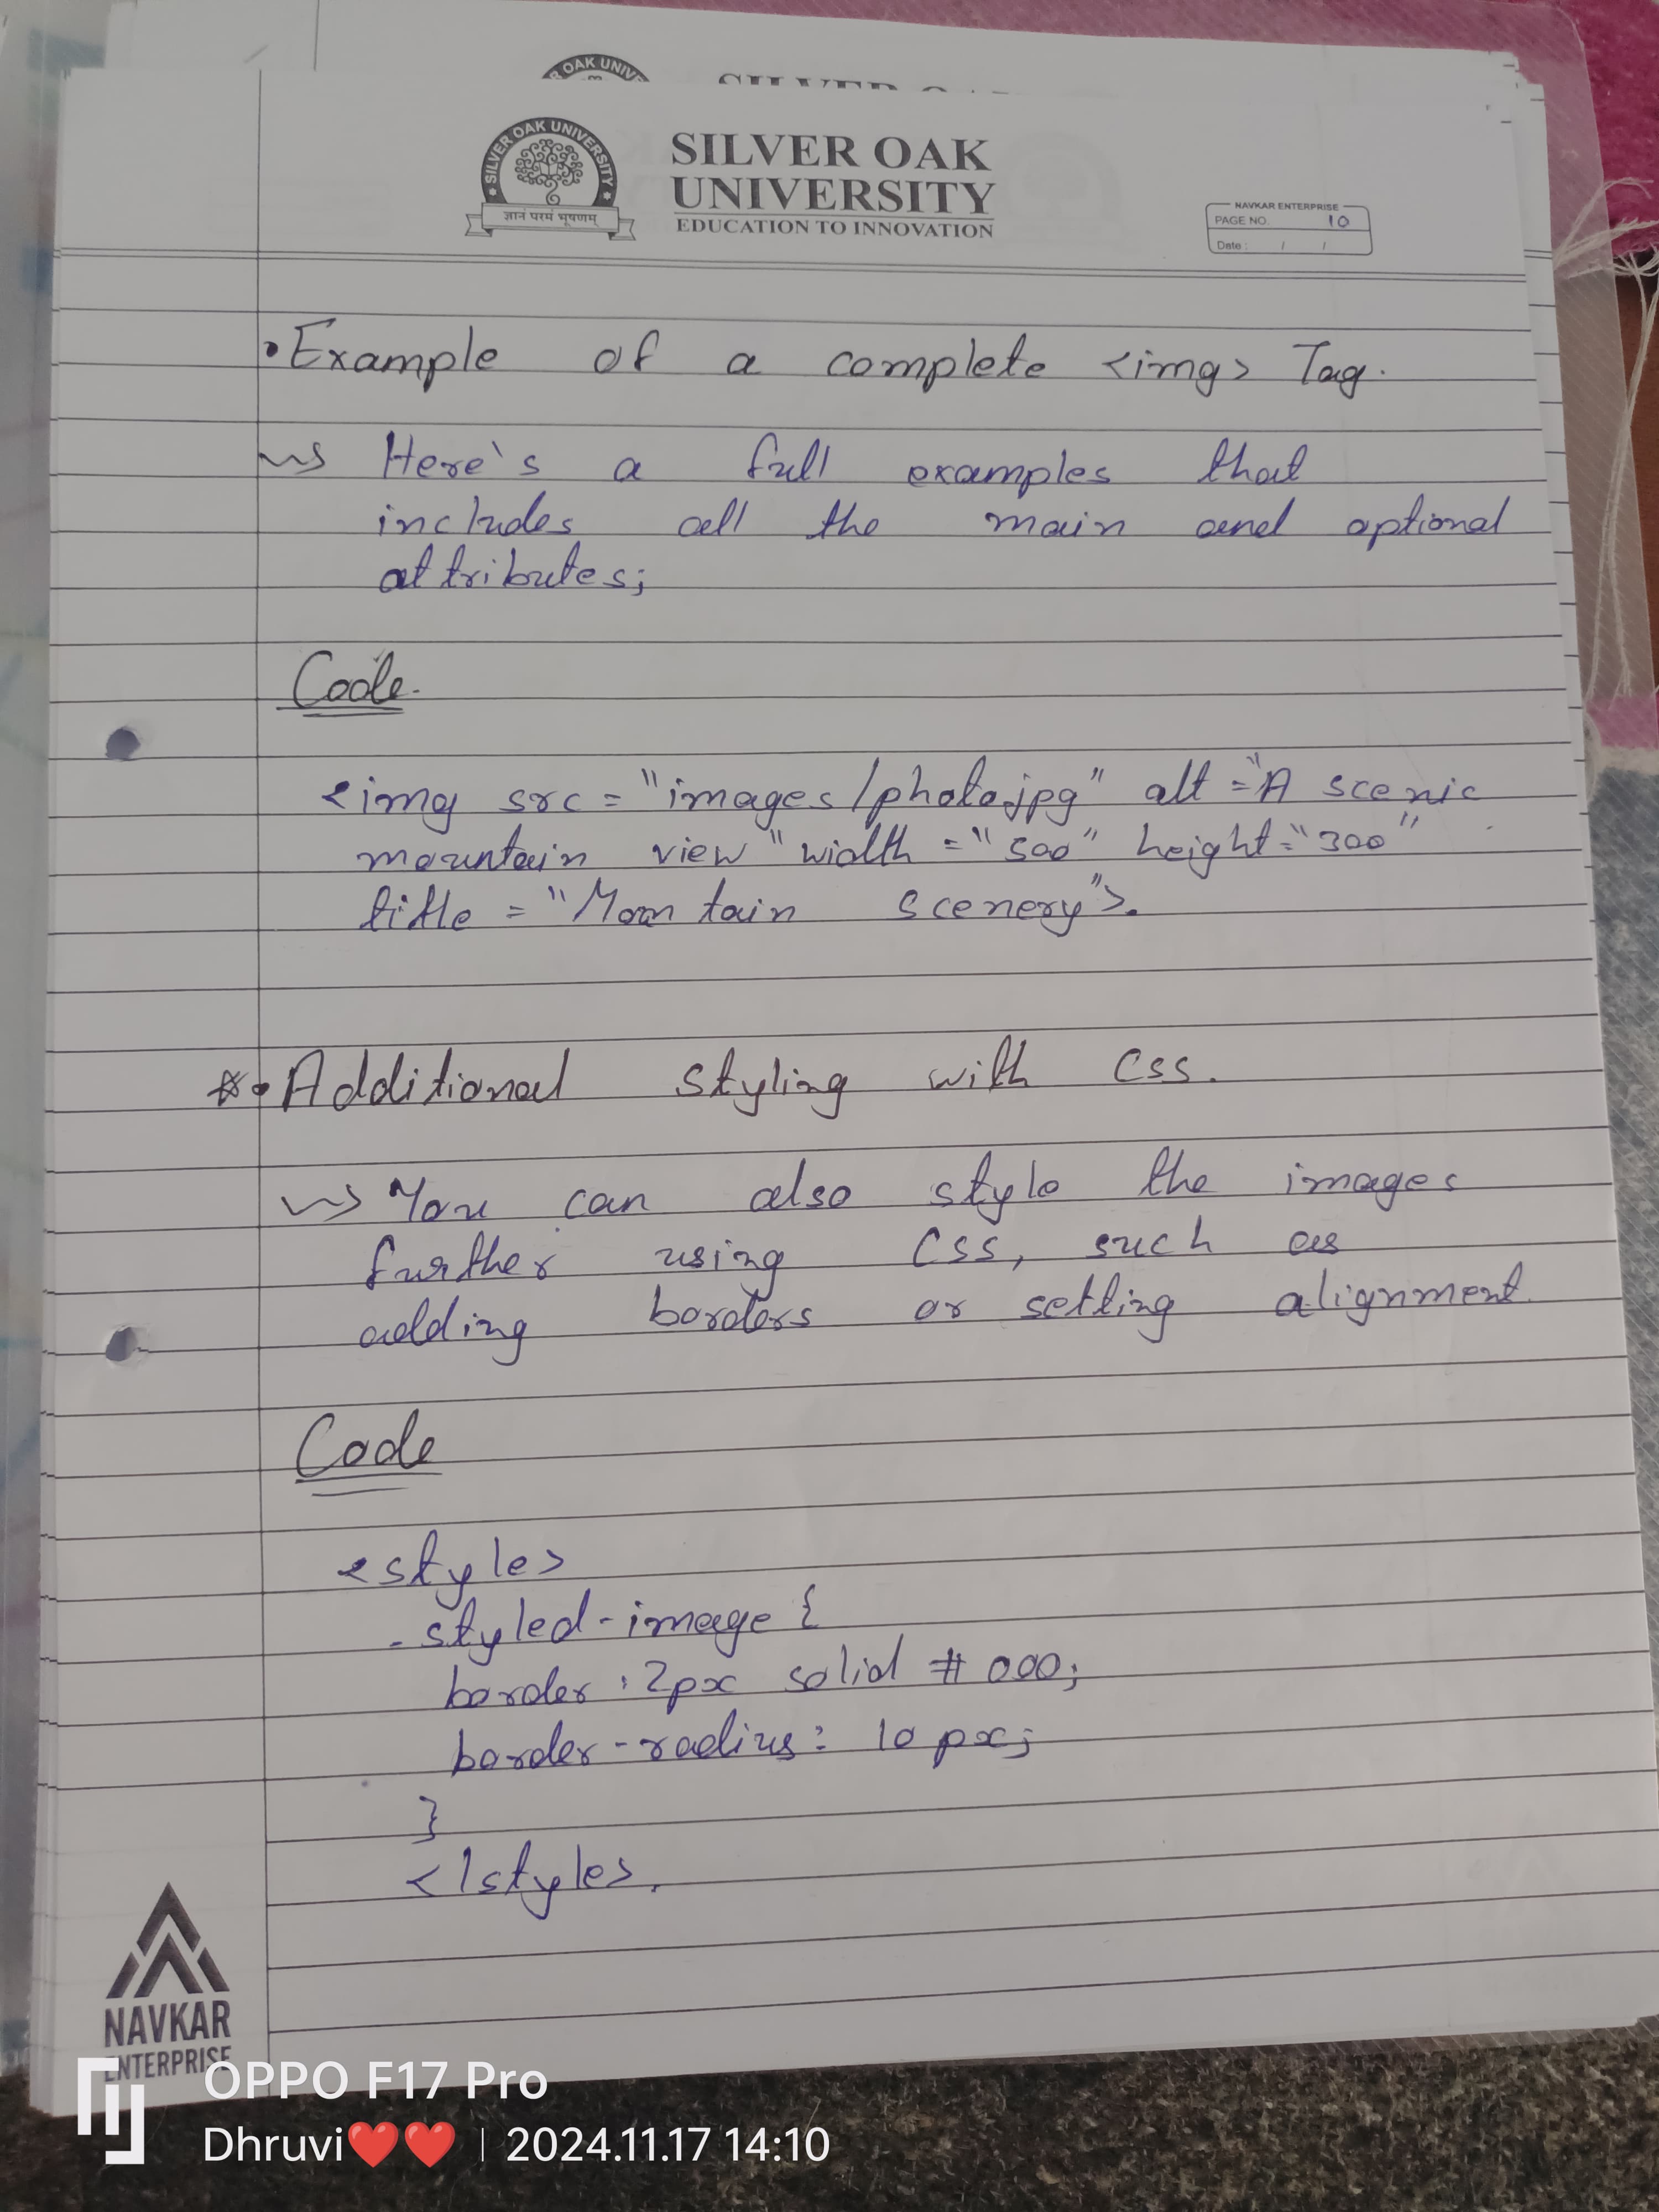 OAK UNIVE
SILVER OAK UNIVERSITY
ज्ञानं परमं भूषणम्
SILVER OAK
UNIVERSITY
EDUCATION TO INNOVATION
NAVKAR ENTERPRISE
PAGE NO. 10
Date : / /
• Example of a complete <img> Tag.
Here's a full examples that
includes all the main and optional
attributes;
Code.
<img src = "images/photo.jpg" alt = "A scenic
mountain view" width = "500" height = "300"
title = "Mountain scenery">.
• Additional styling with css.
You can also style the images
further using css, such as
adding borders or setting alignment.
Code
<style>
.styled-image {
border : 2px solid # 000;
border-radius: 10px;
}
</style>.
NAVKAR
ENTERPRISE
OPPO F17 Pro
Dhruvi❤️❤️ | 2024.11.17 14:10